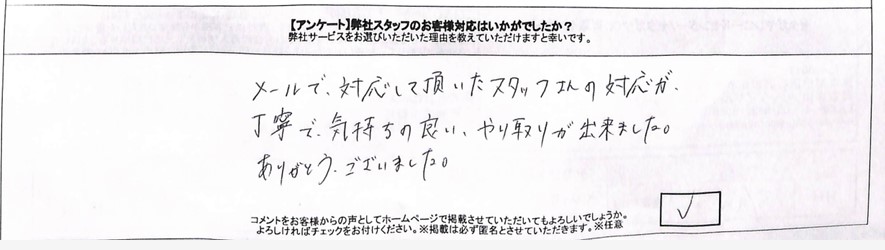 【アンケート】弊社スタッフのお客様対応はいかがでしたか？
弊社サービスをお選びいただいた理由を教えていただけますと幸いです。
メールで、対応して頂いたスタッフさんの対応が、
丁寧で、気持ちの良い、やり取りが出来ました。
ありがとう、ございました。
コメントをお客様からの声としてホームページで掲載させていただいてもよろしいでしょうか。
よろしければチェックをお付けください。※掲載は必ず匿名とさせていただきます。※任意